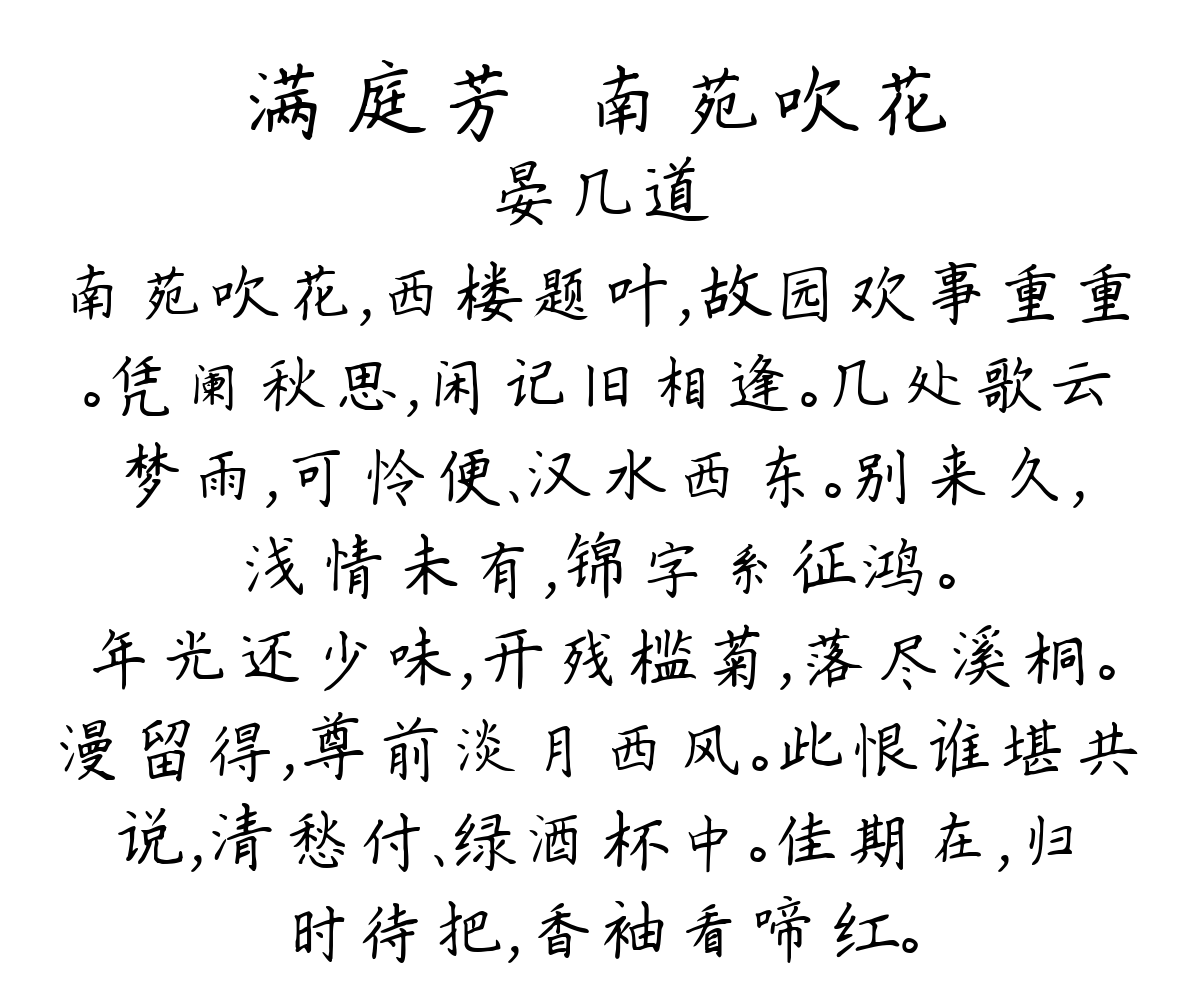 满庭芳 南苑吹花
晏几道
南苑吹花,西楼题叶,故园欢事重重
。凭阑秋思,闲记旧相逢。几处歌云
梦雨,可怜便、汉水西东。别来久,
浅情未有,锦字系征鸿。
年光还少味,开残槛菊,落尽溪桐。
漫留得,尊前淡月西风。此恨谁堪共
说,清愁付、绿酒杯中。佳期在,归
时待把,香袖看啼红。